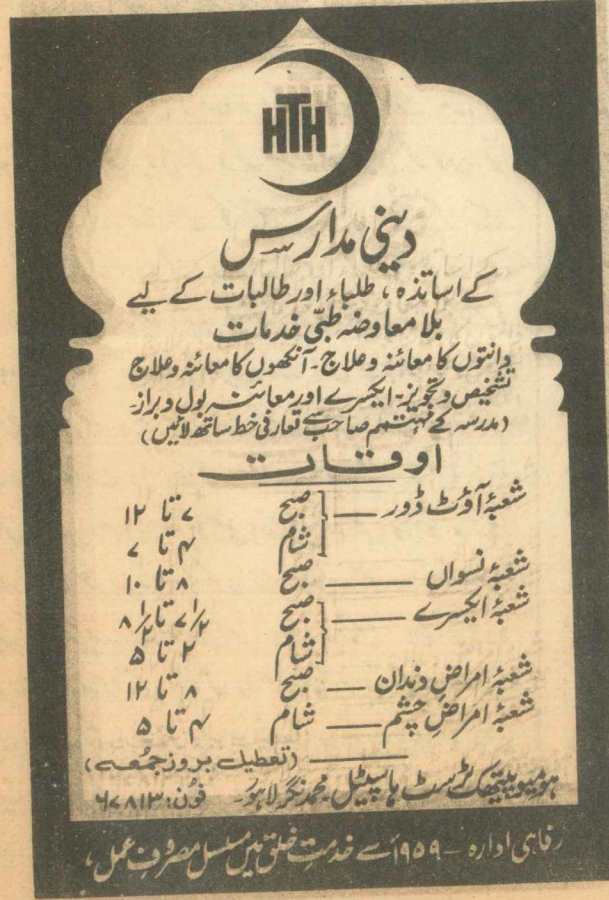 HTH
دینی مدارس
کے اساتذہ ، طلباء اور طالبات کے لیے
بلا معاوضہ طبّی خدمات
دانتوں کا معائنہ و علاج ۔ آنکھوں کا معائنہ و علاج
تشخیص و تجویز ۔ ایکسرے اور معائنہ بول و براز ۔
(مدرسہ کے مہتمم صاحب سے تعارفی خط ساتھ لائیں)
اوقات
شعبۂ آؤٹ ڈور — صبح ۷ تا ۱۲
شام ۴ تا ۷
شعبۂ نسواں — صبح ۸ تا ۱۰
شعبۂ ایکسرے — صبح ۷ ۱/۲ تا ۸ ۱/۲
شام ۲ تا ۵
شعبۂ امراضِ دندان — صبح ۸ تا ۱۲
شعبۂ امراضِ چشم — شام ۴ تا ۵
(تعطیل بروز جمُعہ)
ہومیوپیتھک ٹرسٹ ہاسپیٹل ۔ محمد نگر لاہور ۔ فون: ۶۷۸۱۳
رفاہی ادارہ ۔ ۱۹۵۹ء سے خدمتِ خلق میں مسلسل مصروفِ عمل ،